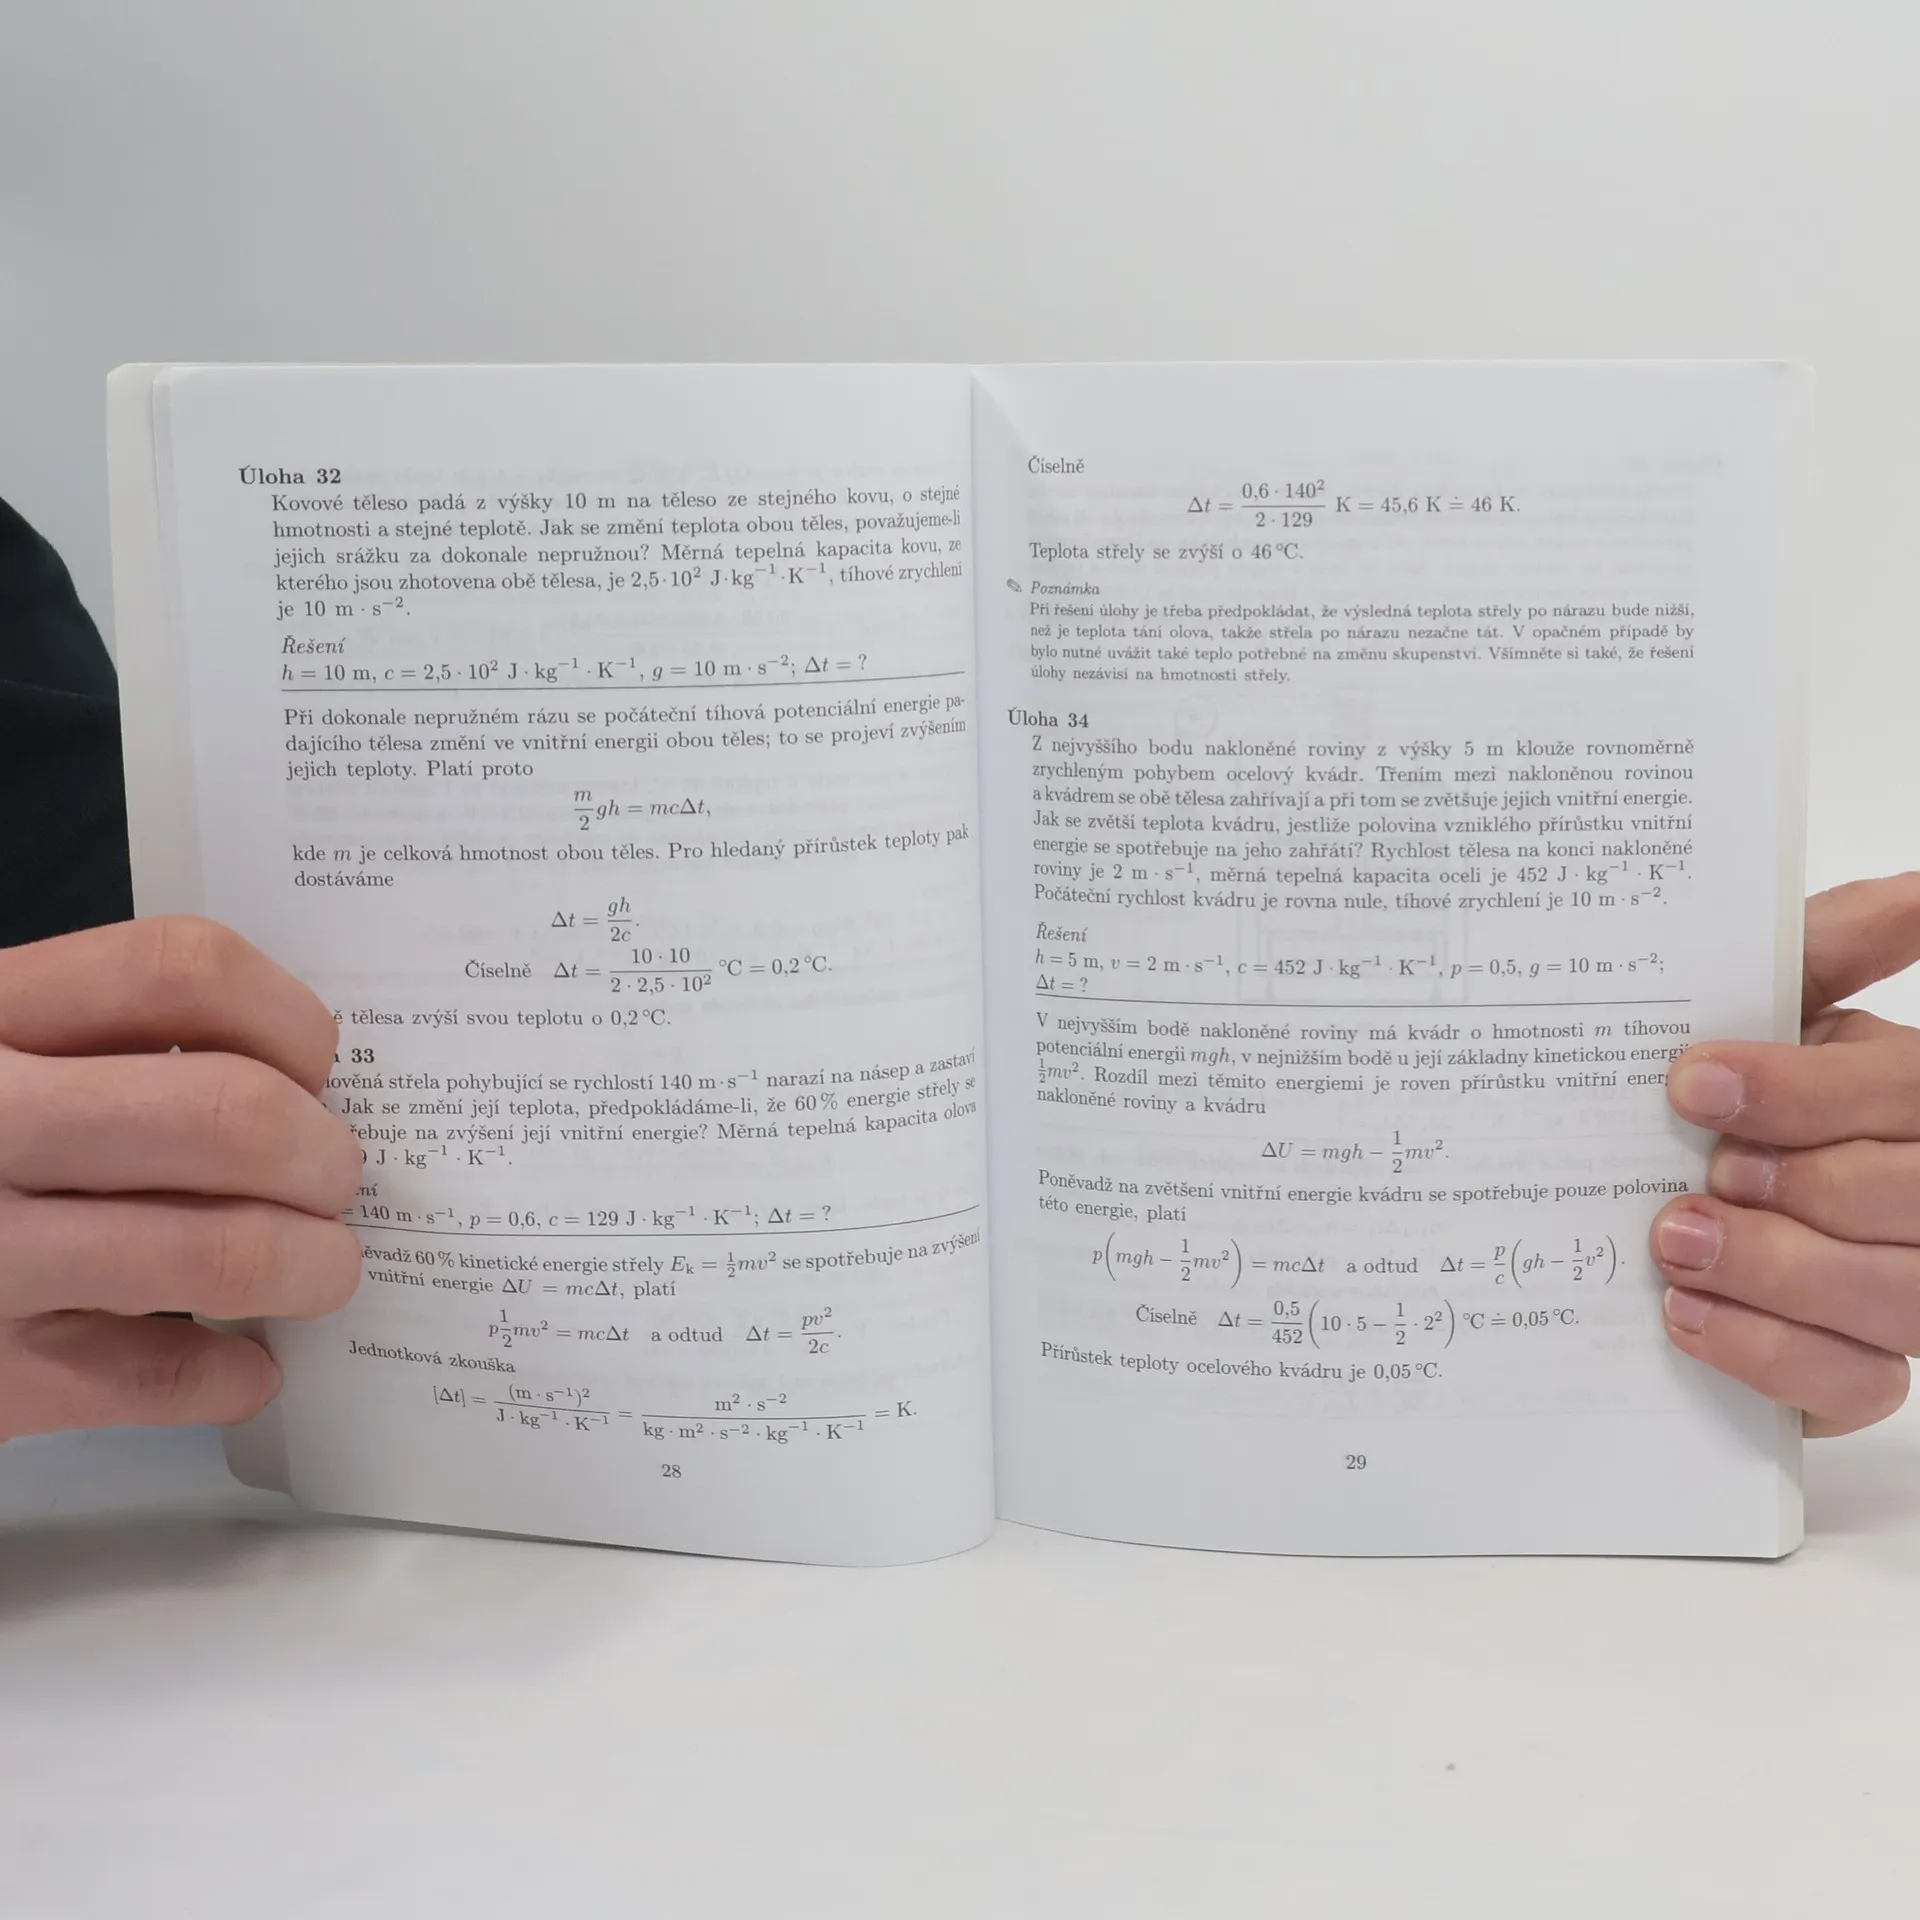 Úloha 32
Kovové těleso padá z výšky 10 m na těleso ze stejného kovu, o stejné
hmotnosti a stejné teplotě. Jak se změní teplota obou těles, považujeme-li
jejich srážku za dokonale nepružnou? Měrná tepelná kapacita kovu, ze
kterého jsou zhotovena obě tělesa, je 2,5 · 10² J · kg⁻¹ · K⁻¹, tíhové zrychlení
je 10 m · s⁻².
Řešení
h = 10 m, c = 2,5 · 10² J · kg⁻¹ · K⁻¹, g = 10 m · s⁻²; Δt = ?
Při dokonale nepružném rázu se počáteční tíhová potenciální energie pa-
dajícího tělesa změní ve vnitřní energii obou těles; to se projeví zvýšením
jejich teploty. Platí proto
m/2 gh = mcΔt,
kde m je celková hmotnost obou těles. Pro hledaný přírůstek teploty pak
dostáváme
Δt = gh/2c.
Číselně Δt = (10 · 10)/(2 · 2,5 · 10²) °C = 0,2 °C.
tělesa zvýší svou teplotu o 0,2 °C.
33
střela pohybující se rychlostí 140 m · s⁻¹ narazí na násep a zastaví
Jak se změní její teplota, předpokládáme-li, že 60 % energie střely se
na zvýšení její vnitřní energie? Měrná tepelná kapacita olova
J · kg⁻¹ · K⁻¹.
= 140 m · s⁻¹, p = 0,6, c = 129 J · kg⁻¹ · K⁻¹; Δt = ?
60 % kinetické energie střely Eₖ = ½mv² se spotřebuje na zvýšení
vnitřní energie ΔU = mcΔt, platí
p 1/2 mv² = mcΔt a odtud Δt = pv²/2c.
Jednotková zkouška
[Δt] = (m · s⁻¹)²/(J · kg⁻¹ · K⁻¹) = (m² · s⁻²)/(kg · m² · s⁻² · kg⁻¹ · K⁻¹) = K.
28
Číselně
Δt = (0,6 · 140²)/(2 · 129) K = 45,6 K ≐ 46 K.
Teplota střely se zvýší o 46 °C.
✎ Poznámka
Při řešení úlohy je třeba předpokládat, že výsledná teplota střely po nárazu bude nižší,
než je teplota tání olova, takže střela po nárazu nezačne tát. V opačném případě by
bylo nutné uvážit také teplo potřebné na změnu skupenství. Všimněte si také, že řešení
úlohy nezávisí na hmotnosti střely.
Úloha 34
Z nejvyššího bodu nakloněné roviny z výšky 5 m klouže rovnoměrně
zrychleným pohybem ocelový kvádr. Třením mezi nakloněnou rovinou
a kvádrem se obě tělesa zahřívají a při tom se zvětšuje jejich vnitřní energie.
Jak se zvětší teplota kvádru, jestliže polovina vzniklého přírůstku vnitřní
energie se spotřebuje na jeho zahřátí? Rychlost tělesa na konci nakloněné
roviny je 2 m · s⁻¹, měrná tepelná kapacita oceli je 452 J · kg⁻¹ · K⁻¹.
Počáteční rychlost kvádru je rovna nule, tíhové zrychlení je 10 m · s⁻².
Řešení
h = 5 m, v = 2 m · s⁻¹, c = 452 J · kg⁻¹ · K⁻¹, p = 0,5, g = 10 m · s⁻²;
Δt = ?
V nejvyšším bodě nakloněné roviny má kvádr o hmotnosti m tíhovou
potenciální energii mgh, v nejnižším bodě u její základny kinetickou energii
½mv². Rozdíl mezi těmito energiemi je roven přírůstku vnitřní
nakloněné roviny a kvádru
ΔU = mgh − 1/2 mv².
Poněvadž na zvětšení vnitřní energie kvádru se spotřebuje pouze polovina
této energie, platí
p(mgh − 1/2 mv²) = mcΔt a odtud Δt = p/c (gh − 1/2 v²).
Číselně Δt = 0,5/452 (10 · 5 − 1/2 · 2²) °C ≐ 0,05 °C.
Přírůstek teploty ocelového kvádru je 0,05 °C.
29